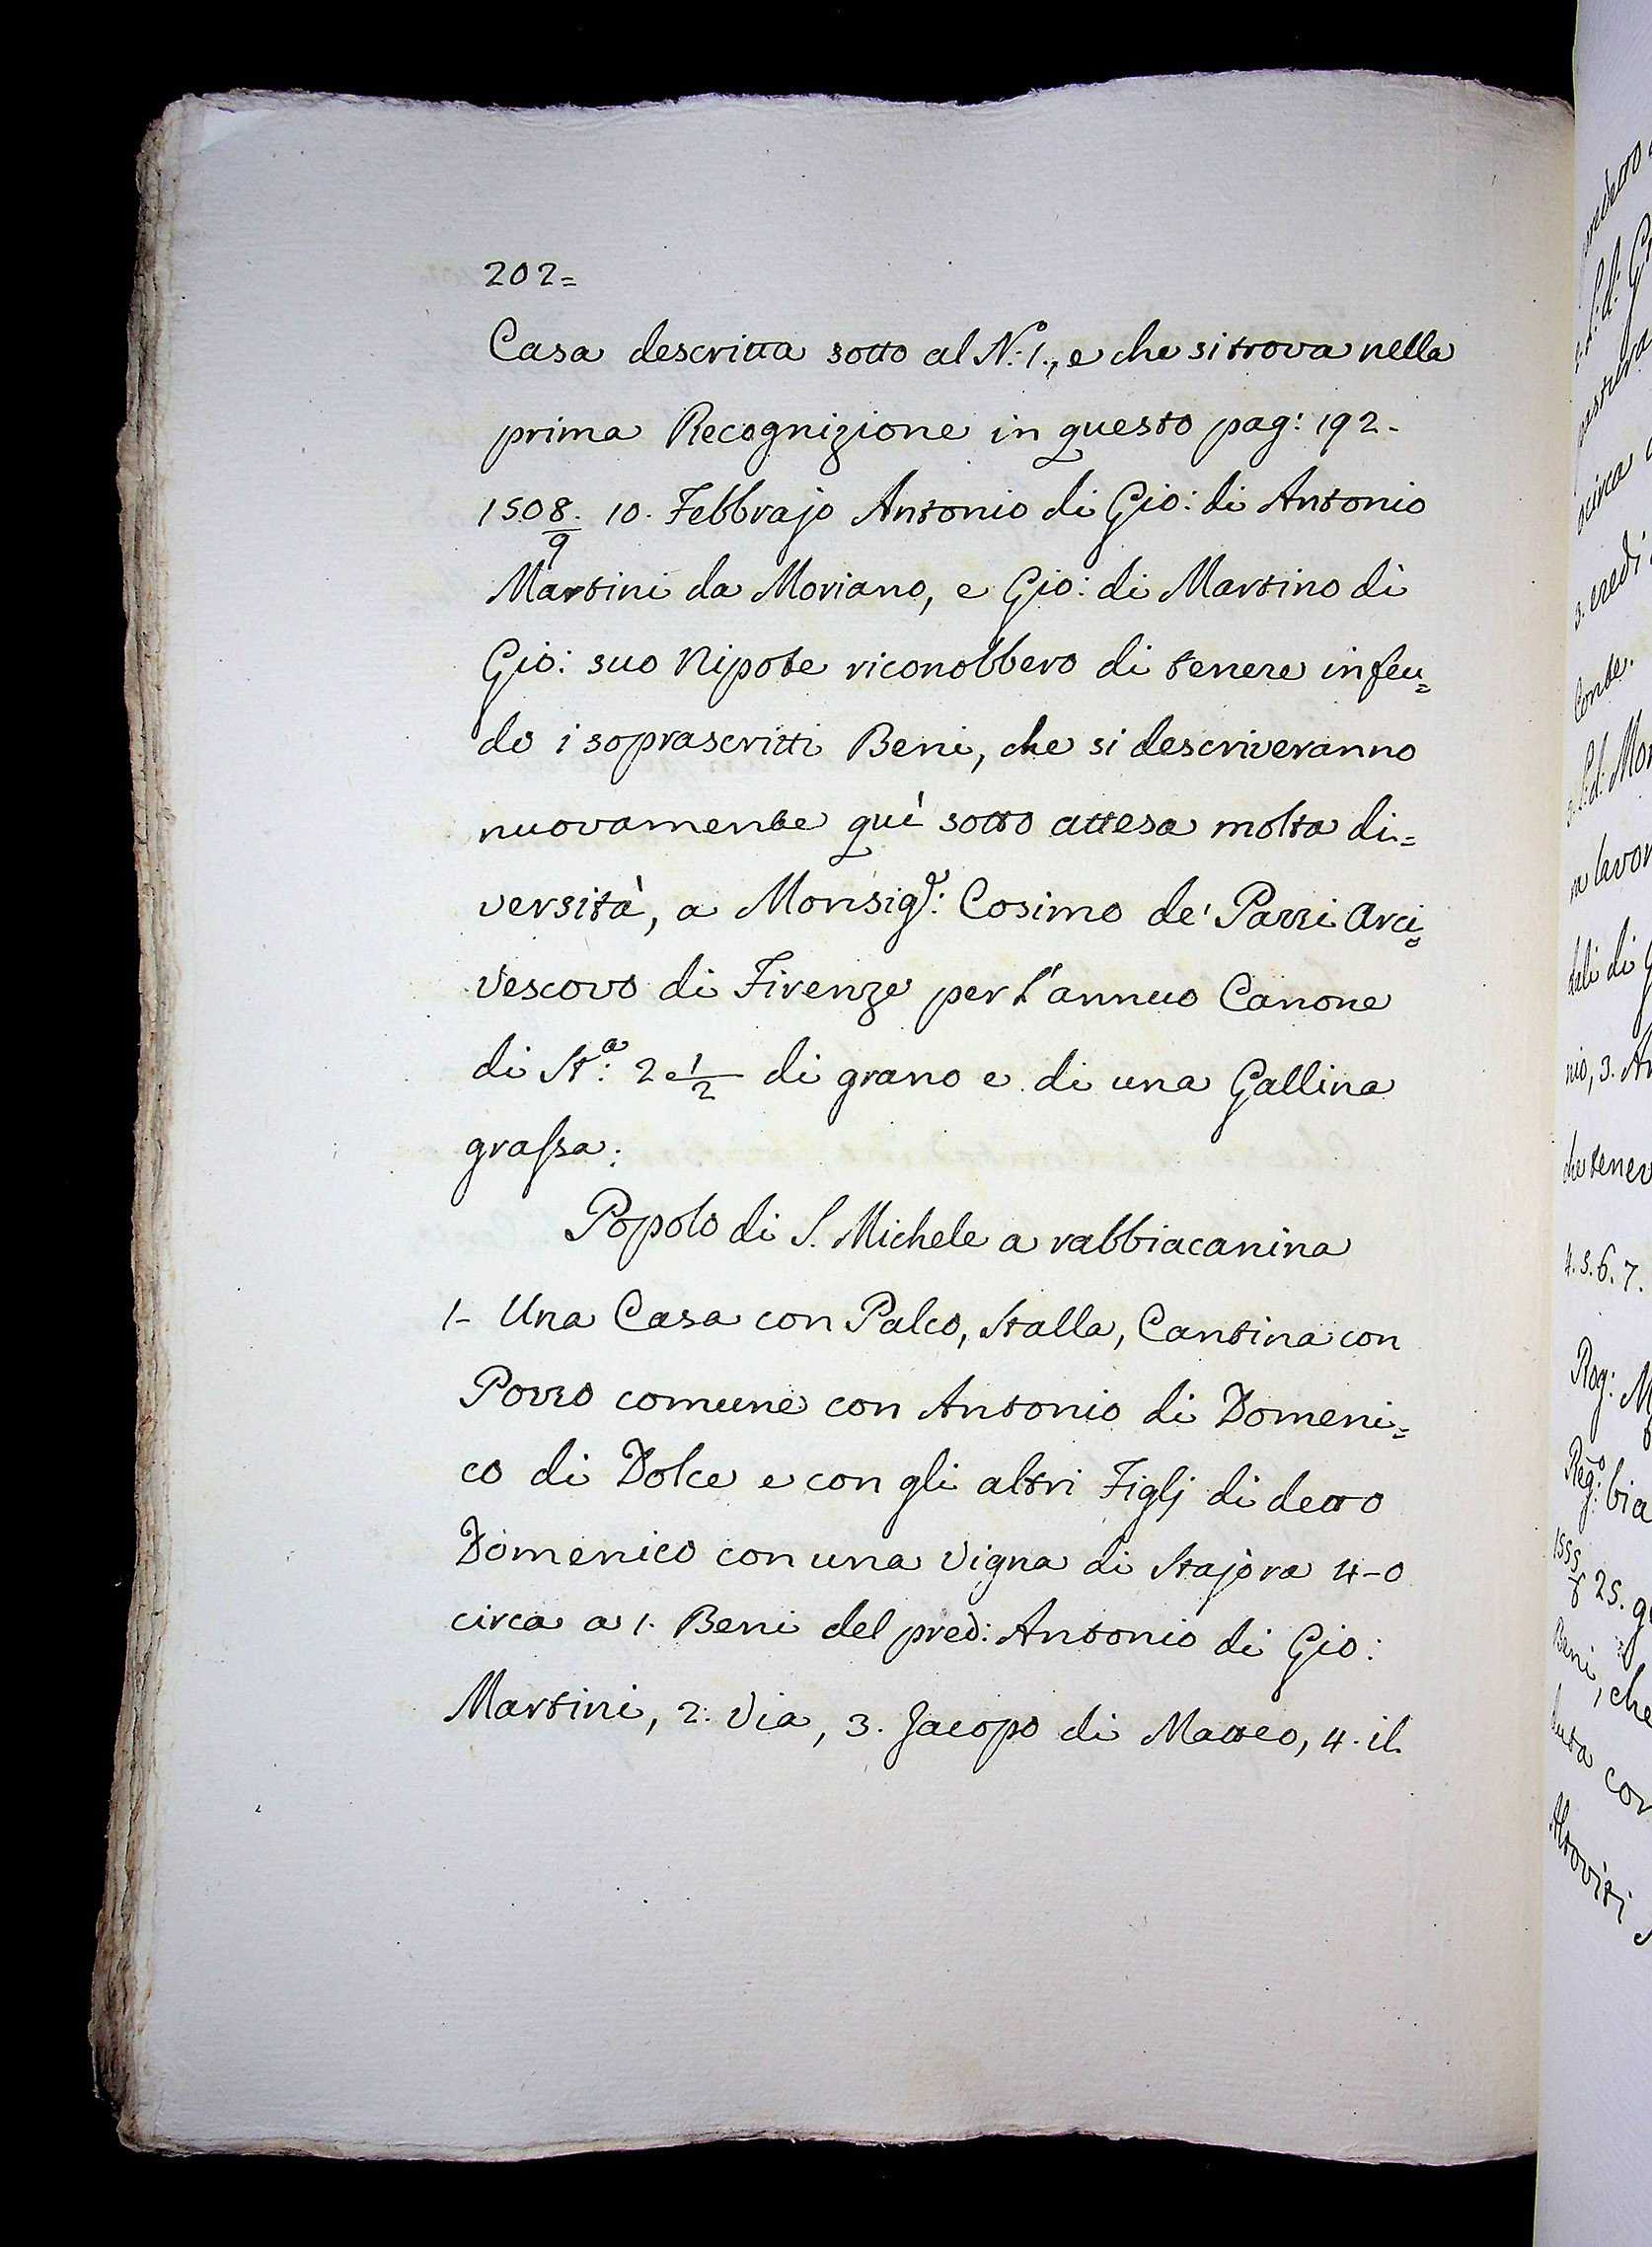 202=
Casa descritta sotto al N.º 1., e che si trova nella
prima Recognizione in questo pag: 192.
1508/9. 10. Febbrajo Antonio di Gio: di Antonio
Martini da Moriano, e Gio: di Martino di
Gio: suo Nipote riconobbero di tenere in feu=
do i soprascritti Beni, che si descriveranno
nuovamente quì sotto attesa molta di=
versità, a Monsig.r: Cosimo de' Pazzi Arci=
vescovo di Firenze per l'annuo Canone
di St.a: 2 e 1/2 di grano e di una Gallina
grassa:
Popolo di S. Michele a rabbiacanina
1- Una Casa con Palco, Stalla, Cantina con
Pozzo comune con Antonio di Domeni=
co di Dolce e con gli altri Figlj di detto
Domenico con una Vigna di Stajora 4-0
circa a 1. Beni del pred: Antonio di Gio:
Martini, 2. Via, 3. Jacopo di Matteo, 4. il
Conte.
4. 5. 6. 7.
Rog: